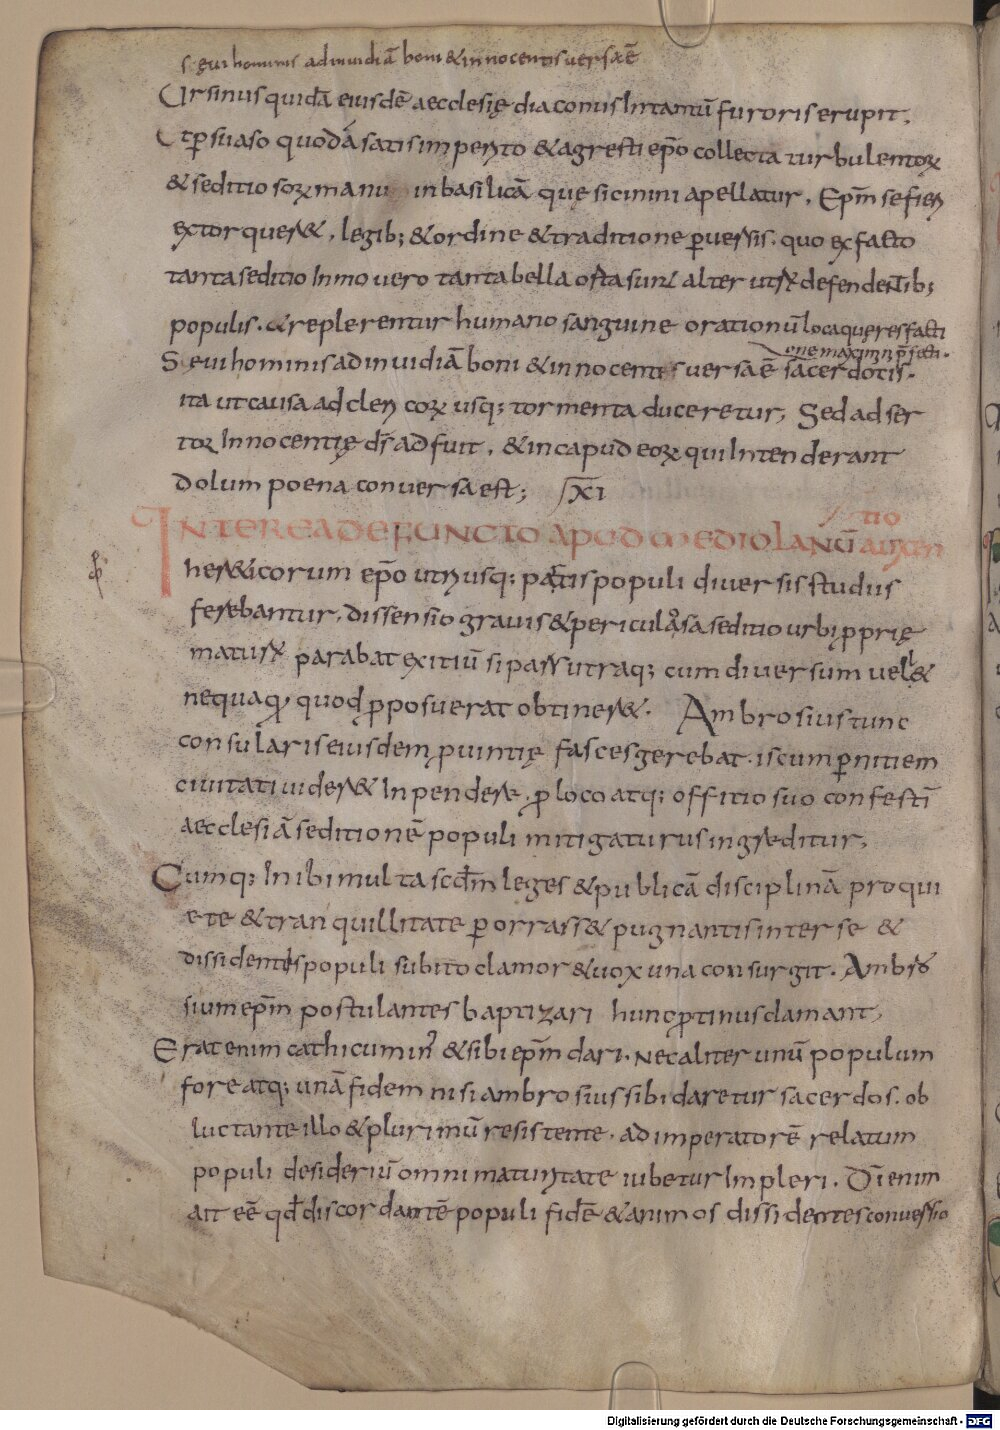 s. eui hominis ad inuidiā boni & innocentis uersa ē
Ursinus quidā eiusdē aecclesię diaconus In tantū furoris erupit.
Ut ꝑsuaso quodā satis imperito & agresti epō collecta turbulentoꝝ
& seditiosoꝝ manu in basilicā quę sicinini apellatur. Epm̄ se fieri
extorquer&. legib; & ordine & traditione ꝑuersis. quo ex facto
tanta seditio Inmo uero tanta bella orta sunt alterutꝝ defendentib;
populis. & replerentur humano sanguine orationū loca quę res facti
one maximini p̄fecti.
Seui hominis ad inuidiā boni & innocentis uersa ē sacerdotis.
ita ut causa ad clericoꝝ usq; tormenta duceretur, Sed adser
tor Innocentię d̄s adfuit. & in capud eoꝝ qui Intenderant
dolum poena conuersa est; XI
INTEREA DEFUNCTO APUD MEDIOLANŪ auxen
tio
her&icorum epō utriusq; partis populi diuersis studiis
ferebantur. dissensio grauis & periculosa seditio urbi ꝓprię
maturū parabat exitiū si pars utraq; cum diuersum uell&
nequaq̄ quod ꝓposuerat obtiner&. Ambrosius tunc
consularis eiusdem ꝓuintię fasces gerebat. is cum ꝑnitiem
ciuitati uider& Inpendere. ꝓ loco atq; offitio suo confestī
aecclesiā seditionē populi mitigaturus ingreditur,
Cumq; In ibi multa scdm̄ leges & publicā disciplinā pro qui
ete & tranquillitate ꝑorrass& pugnantis inter se &
dissidentis populi subito clamor & uox una consurgit. Ambro
sium epm̄ postulantes baptizari hunc ꝓtinus clamant,
Erat enim cathicuminꝰ & sibi epm̄ dari. Nec aliter unū populum
fore atq; unā fidem nisi ambrosius sibi daretur sacerdos. ob
luctante illo & plurimū resistente. ad imperatorē relatum
populi desideriū omni maturitate iubetur Impleri. Dī enim
ait eē qd̄ discordantē populi fidē & animos dissidentes conuersio
Digitalisierung gefördert durch die Deutsche Forschungsgemeinschaft - DFG